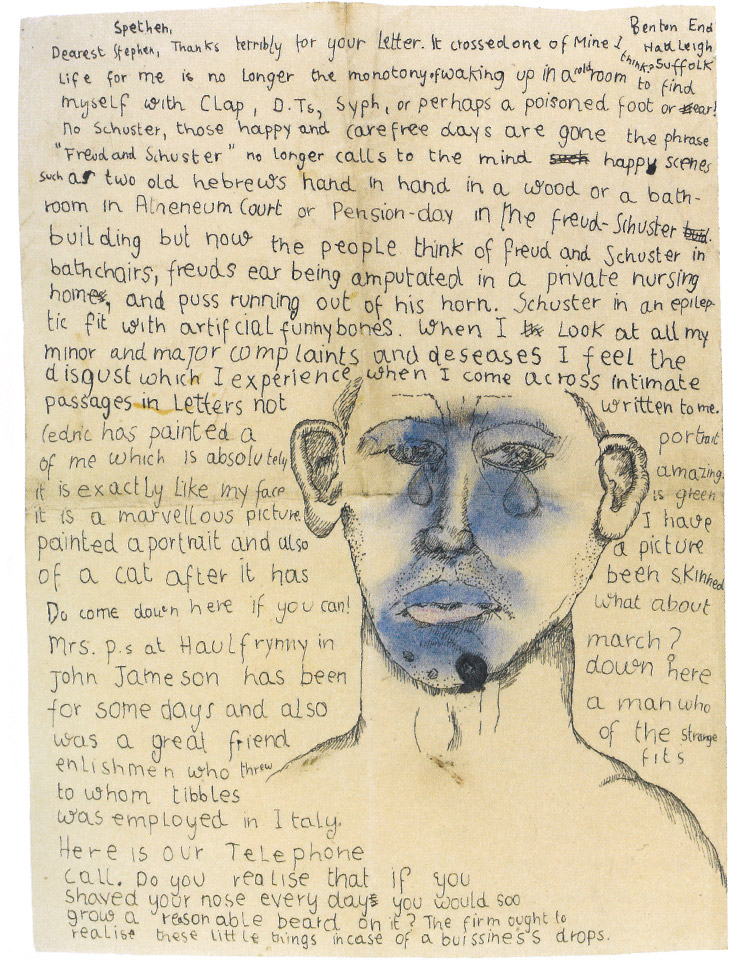 Spethen,
Benton End
Hadleigh
Suffolk
Dearest Stephen, Thanks terribly for your letter. It crossed one of Mine I think?
Life for me is no longer the monotony of waking up in a cold room to find
myself with Clap, D.Ts, Syph, or perhaps a poisoned foot or ear!
no Schuster, those happy and carefree days are gone the phrase
"Freud and Schuster" no longer calls to the mind such happy scenes
such as two old hebrews hand in hand in a wood or a bath-
room in Atheneum Court or Pension-day in the freud-Schuster buil.
building but now the people think of freud and Schuster in
bathchairs, freuds ear being amputated in a private nursing
home, and puss running out of his horn. Schuster in an epilep-
tic fit with artificial funnybones. When I look at all my
minor and major complaints and deseases I feel the
disgust which I experience when I come across intimate
passages in Letters not written to me.
Cedric has painted a portrait
of me which is absolutely amazing.
it is exactly like my face is green
it is a marvellous picture I have
painted a portrait and also a picture
of a cat after it has been skinned
Do come down here if you can! what about
march?
Mrs. p.s at Haulfrynny in down here
John Jameson has been a man who
for some days and also of the strange
was a great friend fits
enlishmen who threw
to whom tibbles
was employed in Italy.
Here is our Telephone
call. Do you realise that if you
shaved your nose every days you would soo
grow a reasonable beard on it? The firm ought to
realise these little things incase of a buissines's drops.